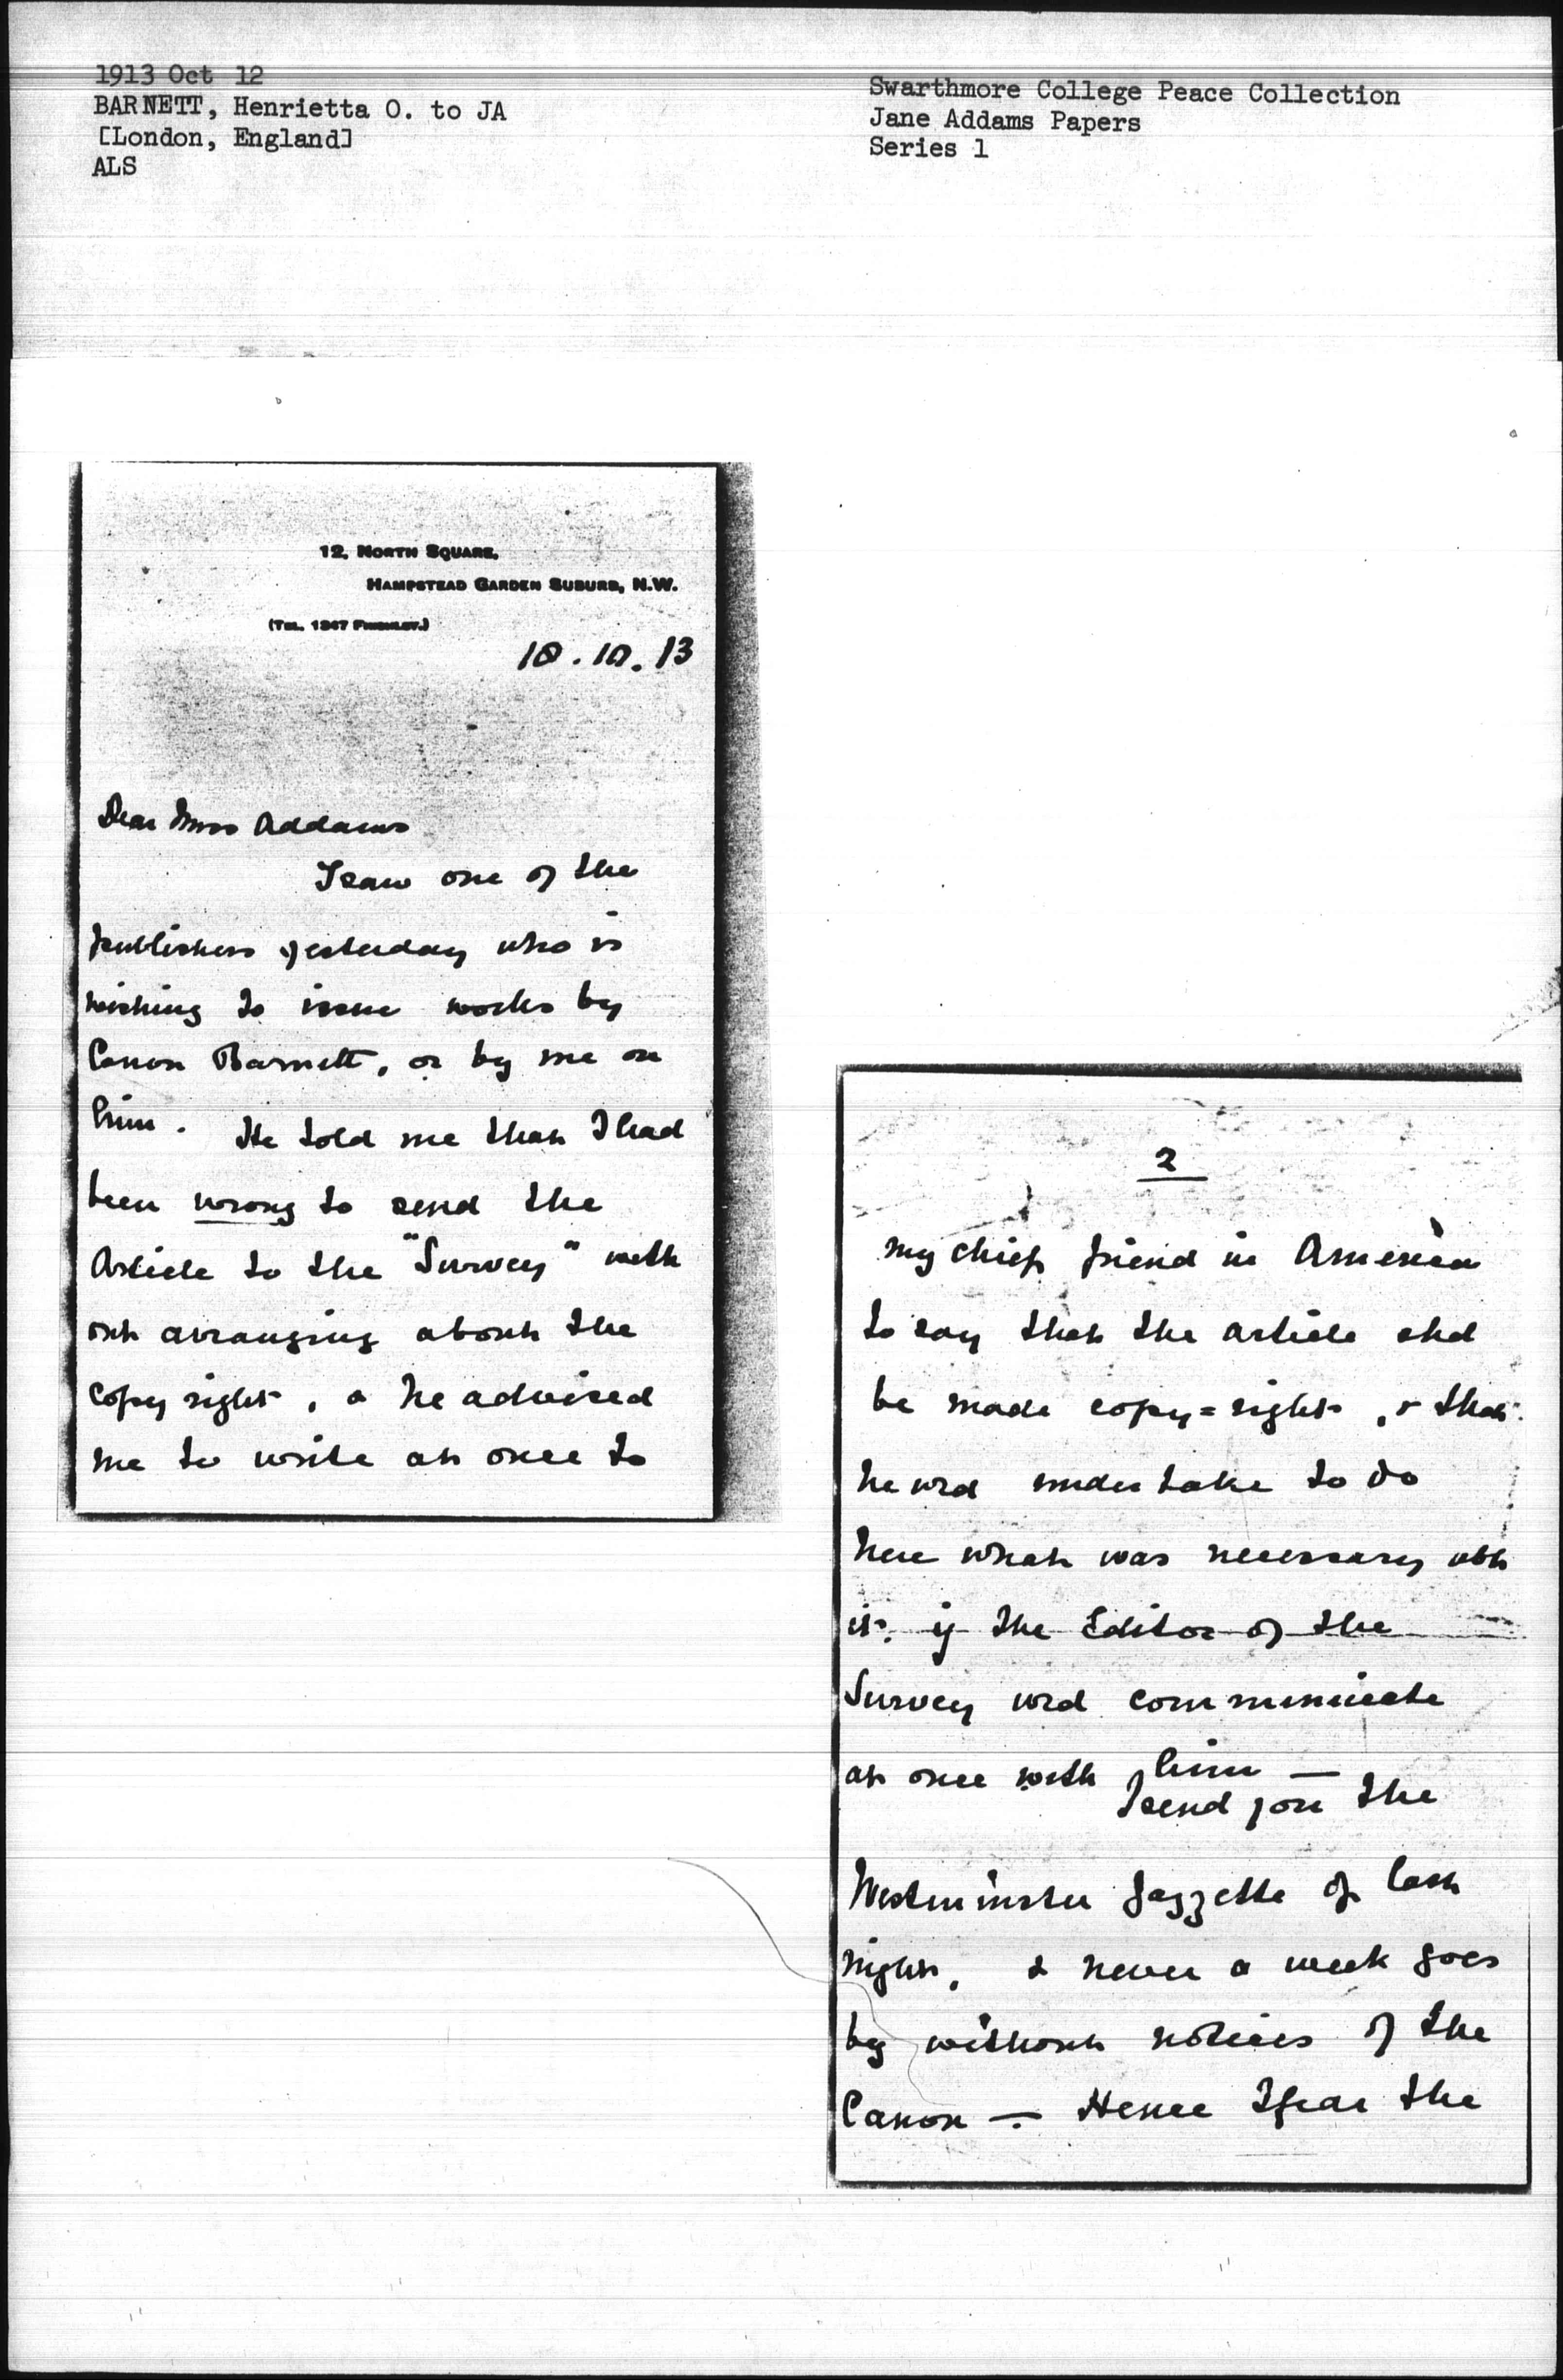 1913 Oct 12
BARNETT, Henrietta O. to JA
[London, England]
ALS
Swarthmore College Peace Collection
Jane Addams Papers
Series 1
12, North Square,
Hampstead Garden Suburb, N.W.
(Tel. 1347 Finchley.)
10.10.13
Dear Miss Addams
I saw one of the
publishers yesterday who is
wishing to issue works by
Canon Barnett, or by me on
him. He told me that I had
been wrong to send the
Article to the "Survey" with
out arranging about the
copy right, & he advised
me to write at once to
2
my chief friend in America
to say that the article shd
be made copy=right, & that
he wld undertake to do
here what was necessary abt
it. if the Editor of the
Survey wld communicate
at once with him —
I send you the
Westminster Gazzette of last
night, & never a week goes
by without notices of the
Canon — Hence I fear the